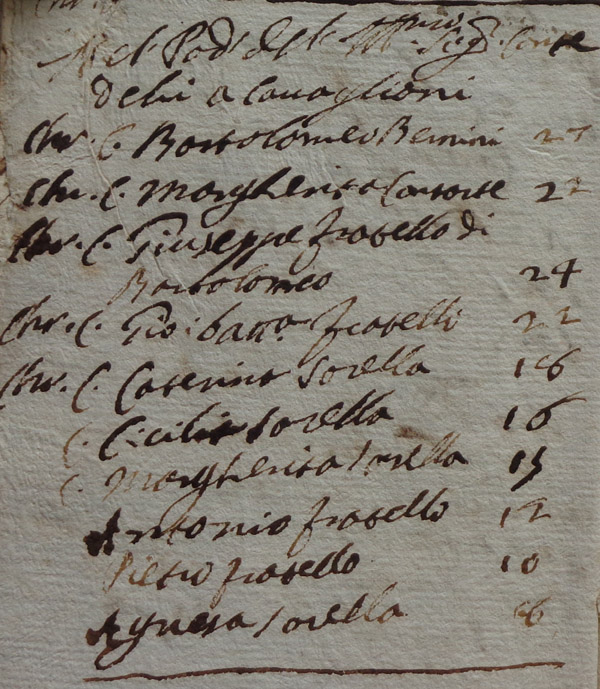 Nel Pod: dell Ill.mo Sig. Conte
Dehi a Cavaglioni
Chr. C. Bartolomeo Bernini 27
Chr. C. Margherita Consorte 22
Chr. C. Giuseppe fratello di
Bartolomeo 24
Chr. C. Gio: batta fratello 22
Chr. C. Caterina Sorella 18
C. Cicilia Sorella 16
C. Margherita Sorella 15
Antonio fratello 12
Pietro fratello 10
Agnesa Sorella 8